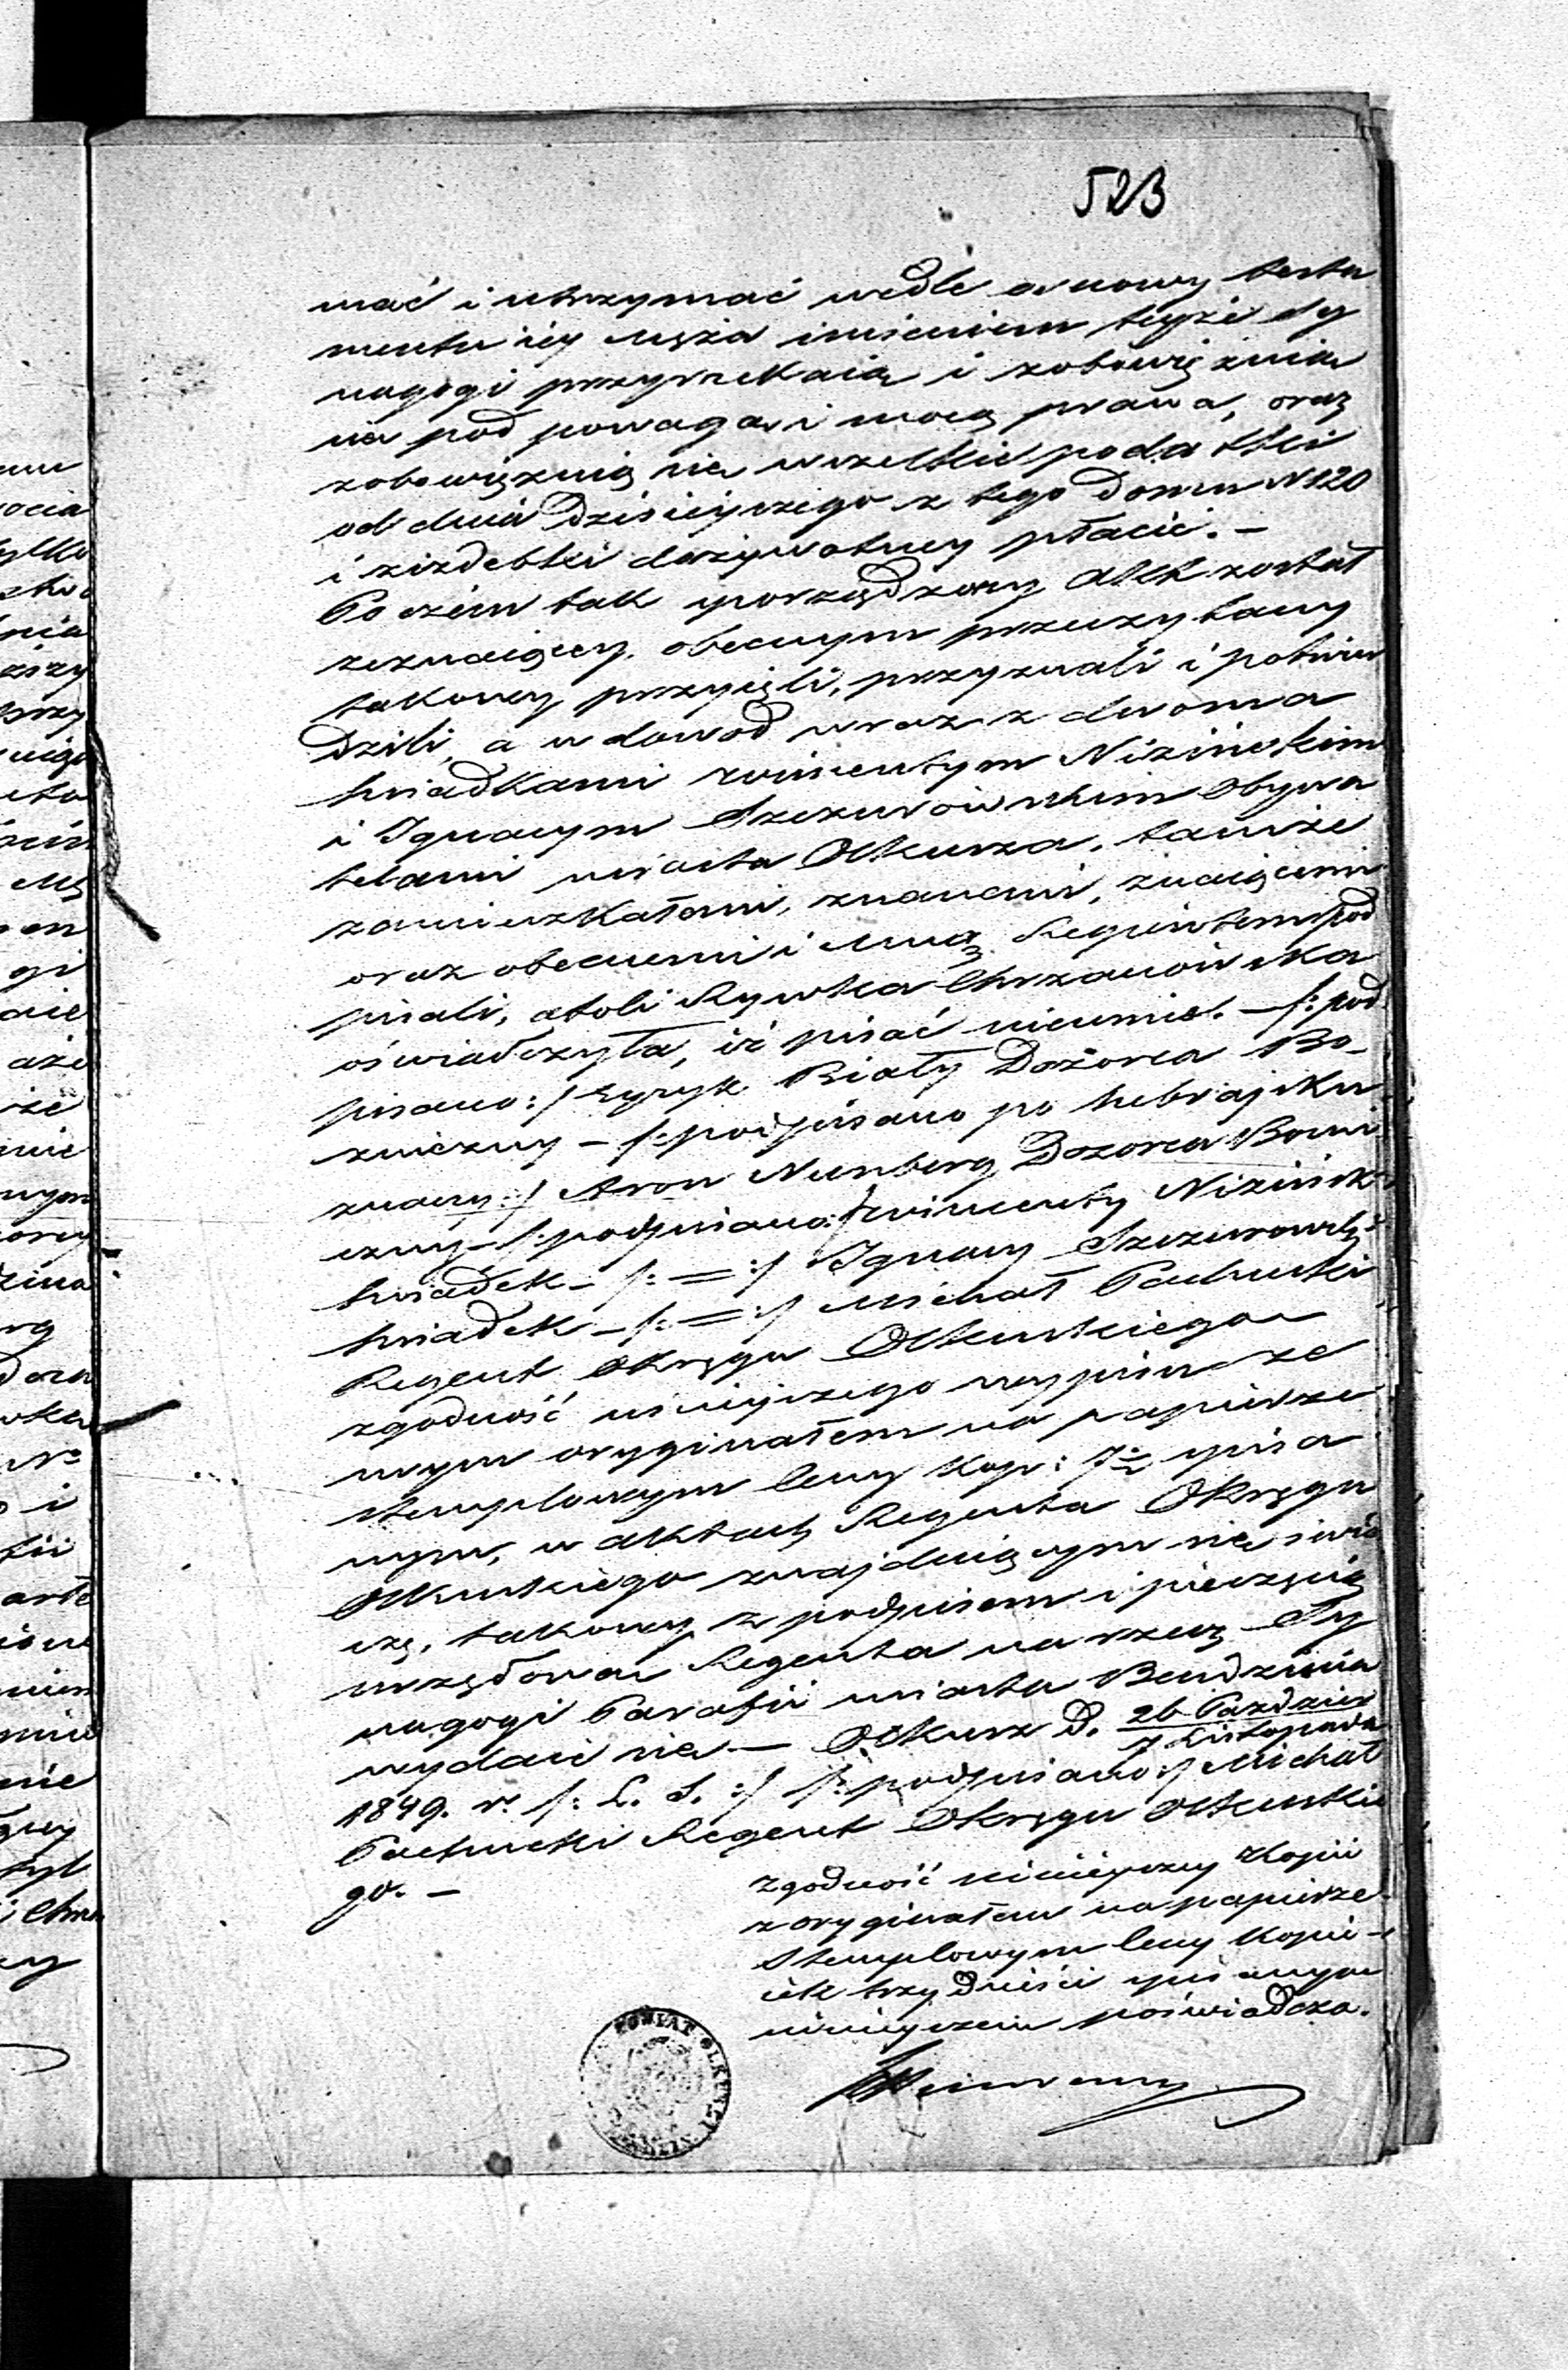 523
mać i utrzymać wedle osnowy testa
mentu iéy męża imieniem teyże Sy
nagogi przyrzekaią i zobowięzuią
się pod powagą i mocą prawa, oraz
zobowięzuią się wszelkie podatki
od dnia dzisieyszego z tego domu N 120
i izdebki dożywotney płacić. –
Po czém tak sporządzony Akt został
zeznaiącym obecnym przeczytany
takowy przyięli, przyznali i potwier
dzili, a w dowod wraz z dwoma
świadkami Wincentym Nizińskim
i Ignacym Szczurowskim Obywa
telami miasta Olkusza, tamże
zamieszkałemi, znanemi, znaiącemi
oraz obecnemi i mną Regentem pod
pisali, atoli Rywka Chrzanowska
oświadczyła, iż pisać nieumie. – /: pod
pisano :/ Eyzyk Biały Dozorca Bo-
zniczny – /: podpisano po hebrajsku
znaczy :/ Aron Nunberg Dozorca Bozni
czny – /: podpisano :/ Wincenty Nizińsk
świadek – /: = :/ Ignacy Szczurowski
świadek – /: = :/ Michał Pachucki
Regent Okręgu Olkuskiego
zgodność ninieyszego wypisu ze
swym oryginałem na papierze
stemplowym ceny kop: 7½ spisa
nym, w aktach Regenta Okręgu
Olkuskiego znajduiącym się świa
czę, takowy z podpisem i pieczęcią
urzędową Regenta na rzecz Sy
nagogi Parafii miasta Bendzina
wydaie się. – Olkusz d. 26 Paździer
7 Listopada
1849. r. /: L. S. :/ /: podpisano :/ Michał
Pachucki Regent Okręgu Olkuskie
go. –
Zgodność ninieyszey Kopii
z oryginałem na papierze
Stemplowym ceny Kopie-
iek trzydzieści spisanym
ninieyszem poświadcza.
POWIAT OLKUSKI